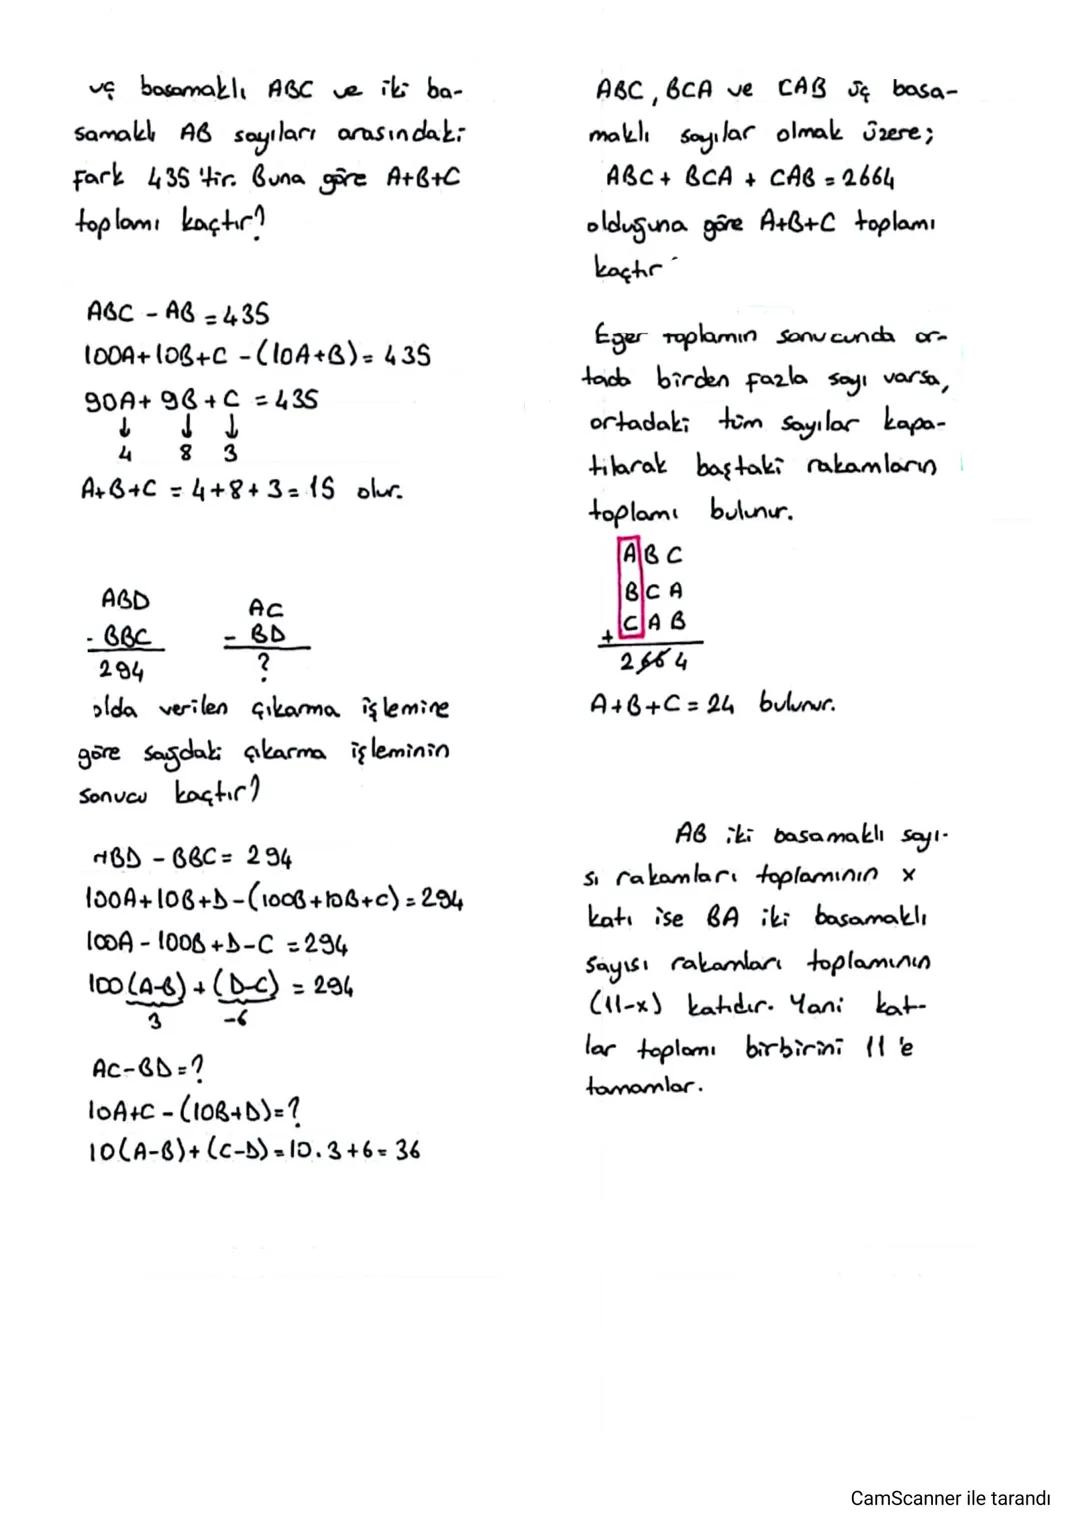 üç basamaklı ABC ve iki ba-
samaklı AB sayıları arasındaki
fark 435 'tir. Buna göre A+B+C
toplamı kaçtır?
ABC - AB = 435
100A+10B+C - (10A+B) = 435
90A+ 9B + C = 435
↓ ↓ ↓
4 8 3
A+B+C = 4+8+3 = 15 olur.
ABD
- BBC
294
AC
- BD
?
olda verilen çıkarma işlemine
göre sağdaki çıkarma işleminin
sonucu kaçtır?
ABD - BBC = 294
100A+10B+D-(100B+10B+C) = 294
100A - 100B + D-C = 294
100(A-B) + (D-C) = 294
3 -6
AC-BD=?
10A+C - (10B+D)=?
10(A-B)+(C-D)=10.3+6=36
ABC, BCA ve CAB üç basa-
maklı sayılar olmak üzere;
ABC + BCA + CAB = 2664
olduğuna göre A+B+C toplamı
kaçtır
Eğer toplamın sonucunda or-
tada birden fazla sayı varsa,
ortadaki tüm sayılar kapa-
tılarak baştaki rakamların
toplamı bulunur.
A B C
B C A
+ C A B
2664
A+B+C = 24 bulunur.
AB iki basamaklı sayı-
sı rakamları toplamının x
katı ise BA iki basamaklı
sayısı rakamları toplamının
(11-x) katıdır. Yani kat-
lar toplamı birbirini 11'e
tamamlar.
CamScanner ile tarandı